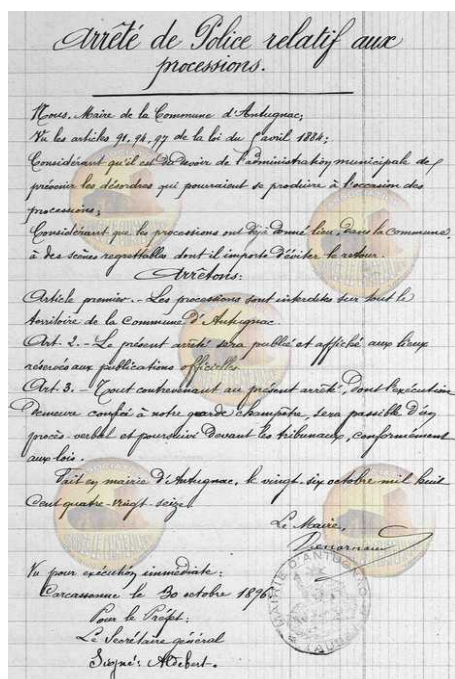 Arrêté de Police relatif aux
processions.
Nous, Maire de la Commune d'Antugnac;
Vu les articles 91, 94, 97 de la loi du 5 avril 1884;
Considérant qu'il est du devoir de l'administration municipale de
prévenir les désordres qui pourraient se produire à l'occasion des
processions;
Considérant que les processions ont déjà donné lieu, dans la commune,
à des scènes regrettables dont il importe d'éviter le retour.
Arrêtons:
Article premier. - Les processions sont interdites sur tout le
territoire de la Commune d'Antugnac.
Art. 2. - Le présent arrêté sera publié et affiché aux lieux
réservés aux publications officielles.
Art. 3. - Tout contrevenant au présent arrêté, dont l'exécution
demeure confiée à notre garde champêtre, sera passible d'un
procès-verbal et poursuivi devant les tribunaux, conformément
aux lois.
Fait en mairie d'Antugnac, le vingt-six octobre mil huit
cent quatre-vingt-seize.
Le Maire,
Vu pour exécution immédiate:
Carcassonne le 30 octobre 1896
Pour le Préfet:
Le Secrétaire général
Signé: Aldebert.
MAIRIE D'ANTUGNAC
(AUDE)